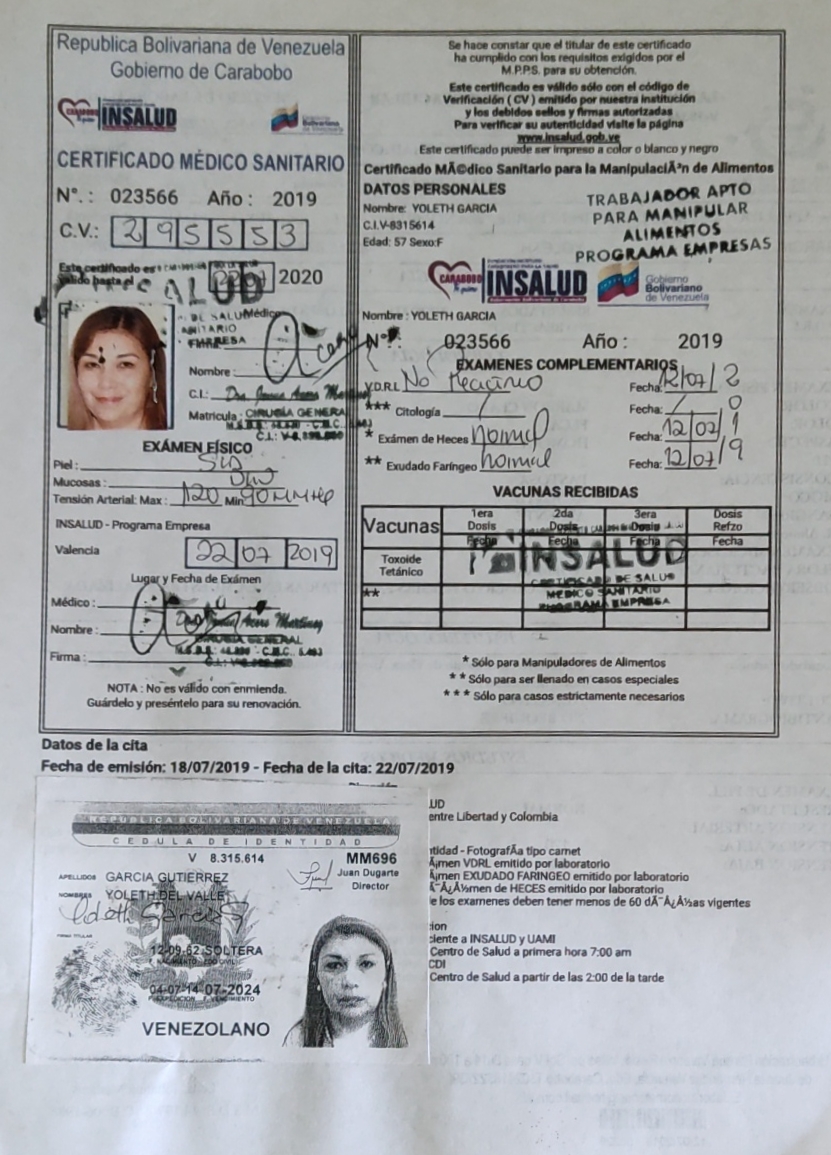 Republica Bolivariana de Venezuela
Gobierno de Carabobo
CARABOBO
INSALUD
Gobierno Bolivariano de Venezuela
CERTIFICADO MÉDICO SANITARIO
N°. : 023566 Año : 2019
C.V.: 295553
Este certificado es
válido hasta el 2020
SALUD
DE SALUD Médico
SANITARIO
EMPRESA
Nombre :
C.I.:
Matricula : CIRUGÍA GENERAL
EXÁMEN FÍSICO
Piel : S/L
Mucosas :
Tensión Arterial: Max : 120 Min 90 MMHg
INSALUD - Programa Empresa
Valencia 22 07 2019
Lugar y Fecha de Exámen
Médico :
Nombre :
CIRUGÍA GENERAL
Firma :
NOTA : No es válido con enmienda.
Guárdelo y preséntelo para su renovación.
Se hace constar que el titular de este certificado
ha cumplido con los requisitos exigidos por el
M.P.P.S. para su obtención.
Este certificado es válido sólo con el código de
Verificación ( CV ) emitido por nuestra institución
y los debidos sellos y firmas autorizadas
Para verificar su autenticidad visite la página
www.insalud.gob.ve
Este certificado puede ser impreso a color o blanco y negro
Certificado MÃ©dico Sanitario para la ManipulaciÃ³n de Alimentos
DATOS PERSONALES
Nombre: YOLETH GARCIA
C.I.V-8315614
Edad: 57 Sexo:F
TRABAJADOR APTO
PARA MANIPULAR
ALIMENTOS
PROGRAMA EMPRESAS
CARABOBO
INSALUD
Gobierno
Bolivariano
de Venezuela
Nombre : YOLETH GARCIA
N°. : 023566 Año : 2019
EXAMENES COMPLEMENTARIOS
V.D.R.L No Reactivo Fecha: 12/07/2
*** Citología / Fecha: / 0
* Exámen de Heces normal Fecha: 12/07/1
** Exudado Faríngeo normal Fecha: 12/07/9
VACUNAS RECIBIDAS
Vacunas 1era Dosis Fecha 2da Dosis Fecha 3era Dosis Fecha Dosis Refzo Fecha
Toxoide
Tetánico
**
INSALUD
CERTIFICADO DE SALUD
MEDICO SANITARIO
PROGRAMA EMPRESA
* Sólo para Manipuladores de Alimentos
* * Sólo para ser llenado en casos especiales
* * * Sólo para casos estrictamente necesarios
Datos de la cita
Fecha de emisión: 18/07/2019 - Fecha de la cita: 22/07/2019
REPUBLICA BOLIVARIANA DE VENEZUELA
CEDULA DE IDENTIDAD
V 8.315.614 MM696
Juan Dugarte
Director
APELLIDOS GARCIA GUTIERREZ
NOMBRES YOLETH DEL VALLE
FIRMA TITULAR
12-09-62 SOLTERA
F. NACIMIENTO EDO CIVIL
04-07-14 07-2024
F. EXPEDICION F. VENCIMIENTO
VENEZOLANO
UD
entre Libertad y Colombia
ntidad - FotografÃ­a tipo carnet
men VDRL emitido por laboratorio
men EXUDADO FARINGEO emitido por laboratorio
men de HECES emitido por laboratorio
e los examenes deben tener menos de 60 dÃ¯Â¿Â½as vigentes
cion
ciente a INSALUD y UAMI
Centro de Salud a primera hora 7:00 am
CDI
Centro de Salud a partir de las 2:00 de la tarde